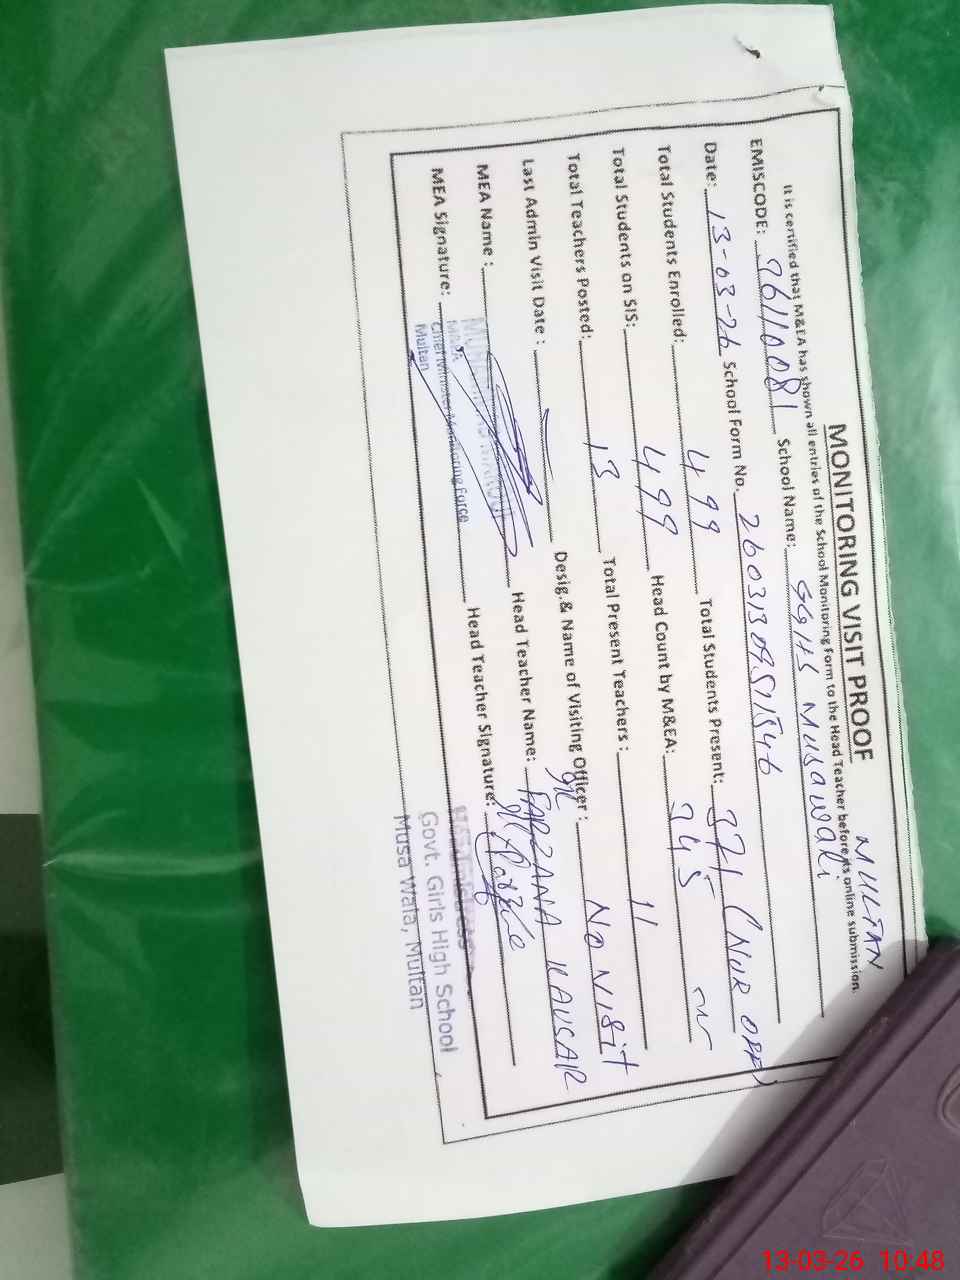 MONITORING VISIT PROOF MULTAN
It is certified that M&EA has shown all entries of the School Monitoring Form to the Head Teacher before its online submission.
EMISCODE: 36110081 School Name: GGHS Musawali
Date: 13-03-26 School Form No. 26031309511546
Total Students Enrolled: 499 Total Students Present: 371 (NUR OPPEN)
Total Students on SIS: 499 Head Count by M&EA: 345
Total Teachers Posted: 13 Total Present Teachers : 11
Last Admin Visit Date : Desig.& Name of Visiting Officer : No Visit
MEA Name : Head Teacher Name: FARZANA KAUSAR
MEA Signature: Head Teacher Signature:
MEA
Chief Minister Monitoring Force
Multan
Headmistress
Govt. Girls High School
Musa Wala, Multan
13-03-26 10:48